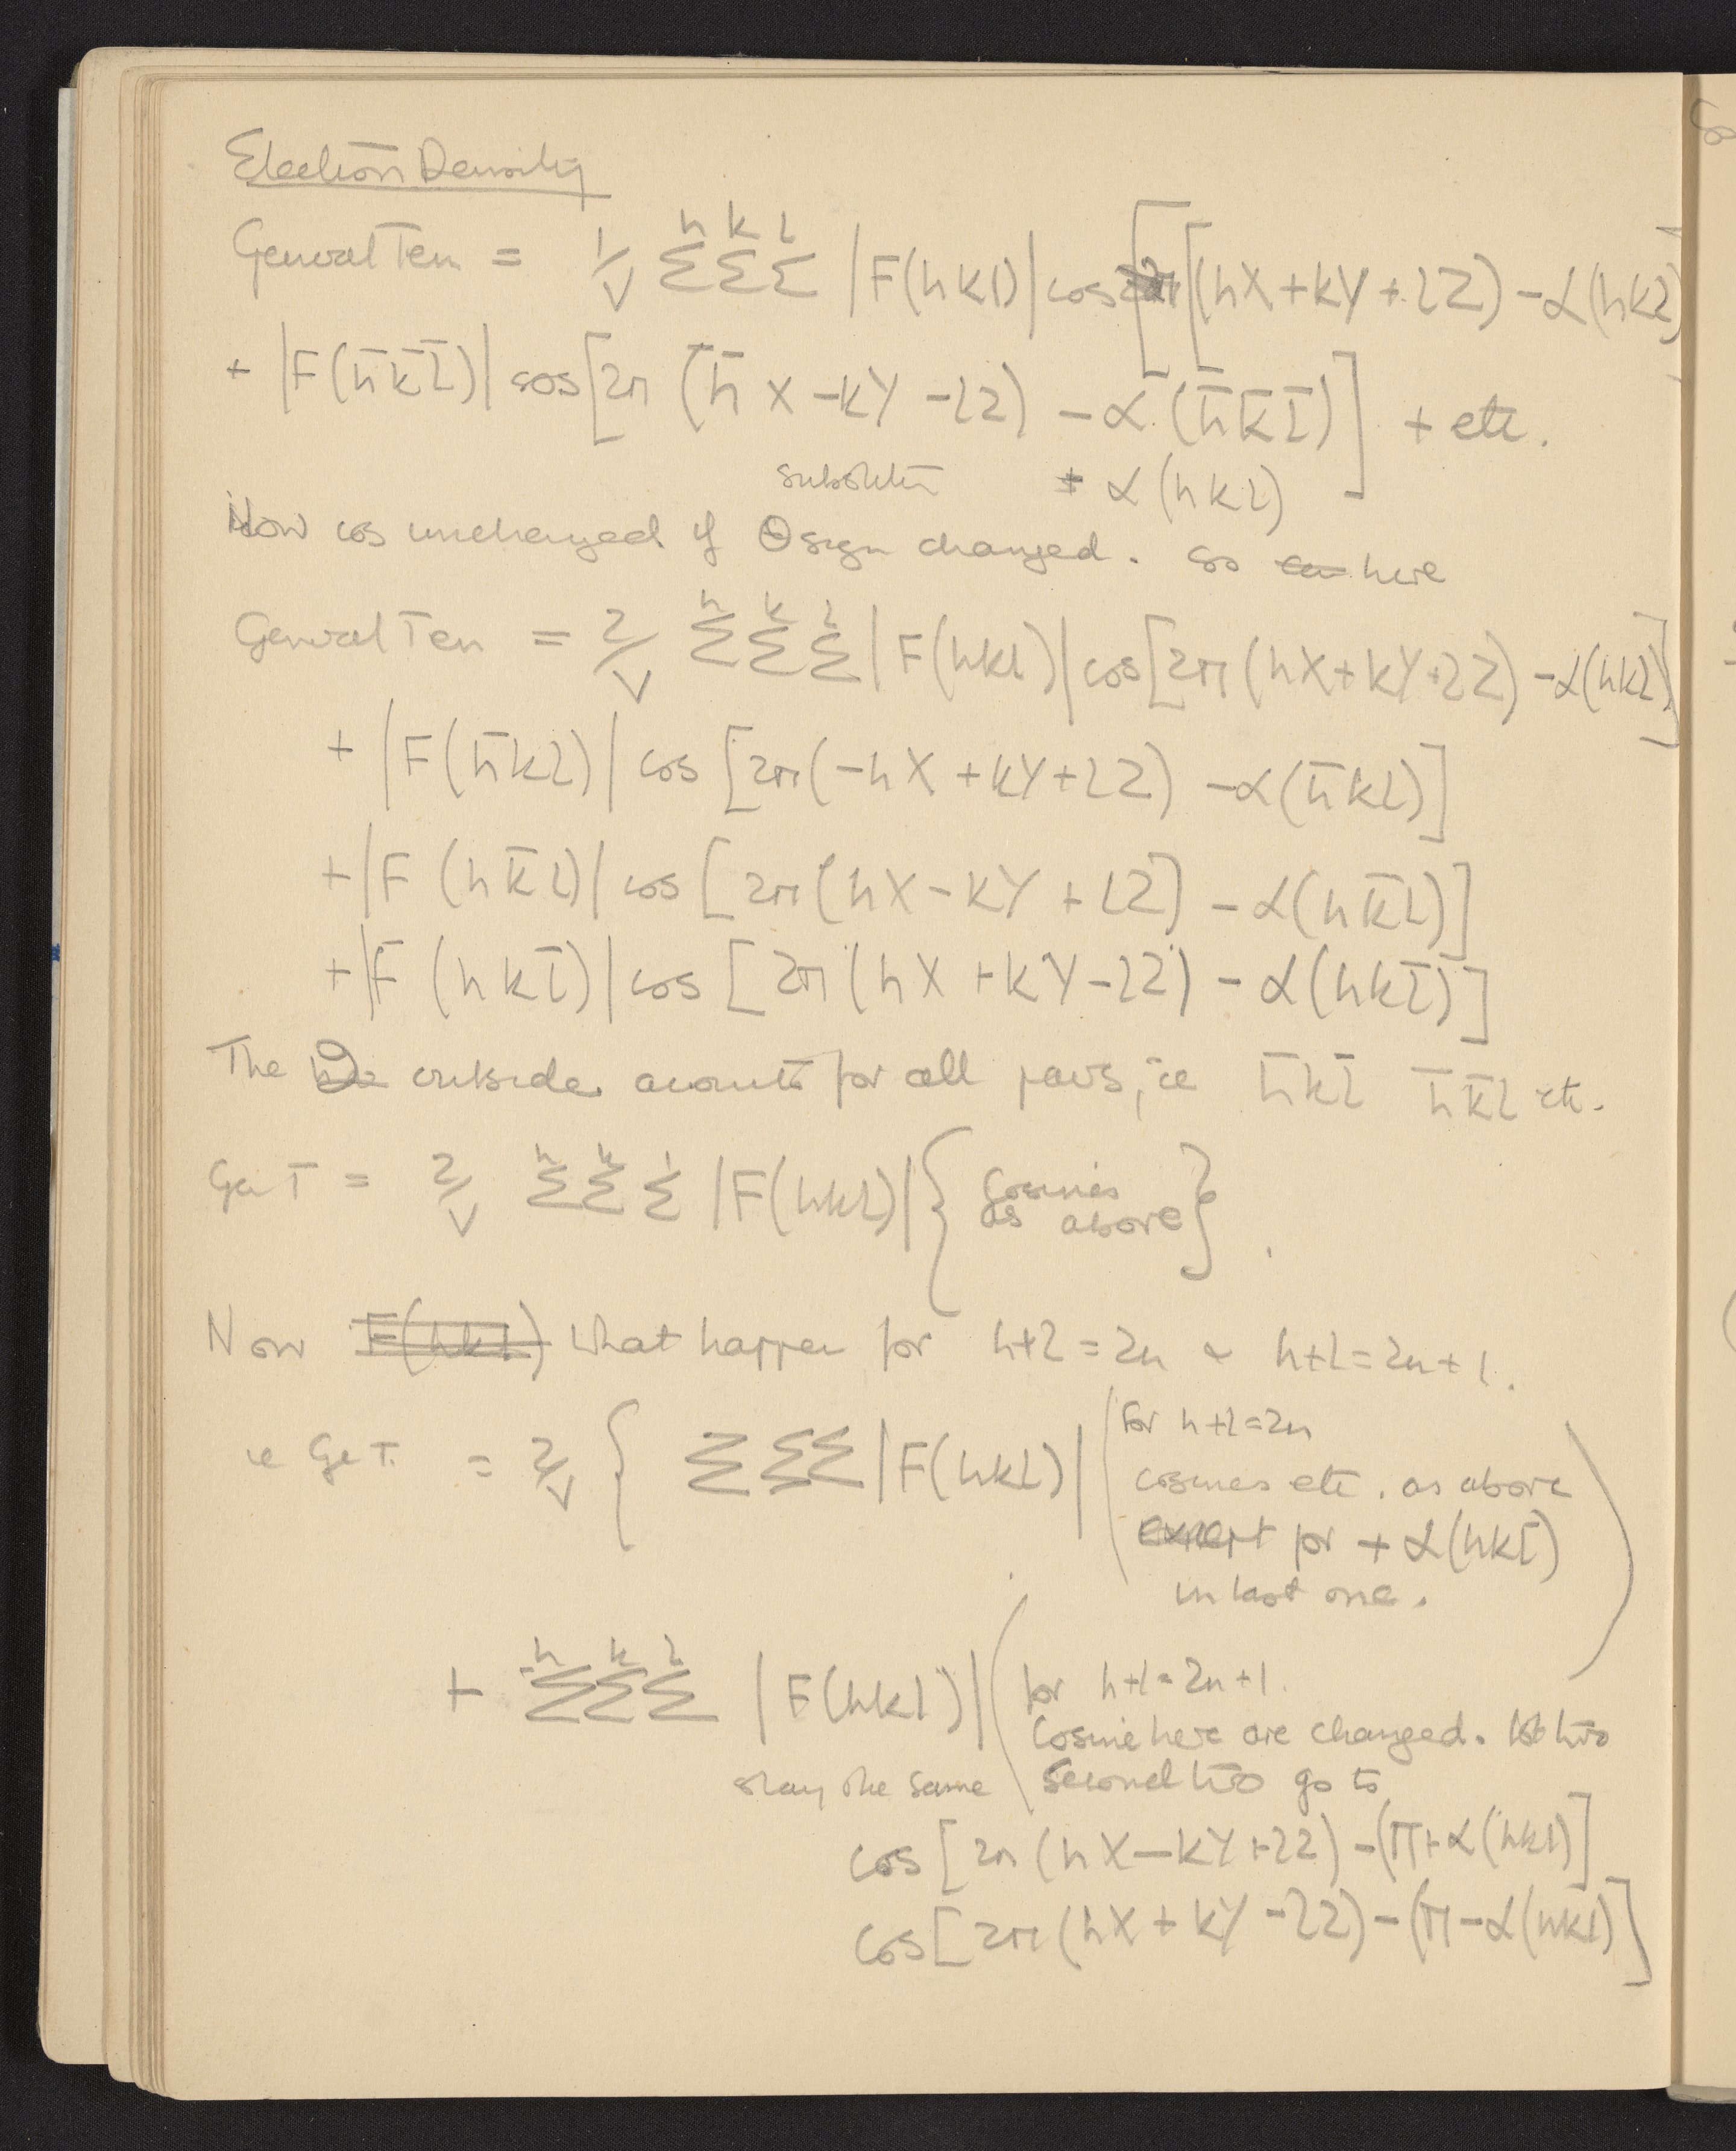 Electron Density
General Term = 1/V Σ^h Σ^k Σ^l |F(hkl)| cos [2π [(hX+kY+lZ) - α(hkl)
+ |F(h̄k̄l̄)| cos [2π (h̄X - kY - lZ) - α (h̄k̄l̄)] + etc.
+ α (hkl)
Now cos unchanged if θ sign changed. So here
General Term = 2/V Σ^h Σ^k Σ^l |F(hkl)| cos [2π (hX+kY+lZ) - α(hkl)]
+ |F(h̄kl)| cos [2π(-hX + kY + lZ) - α(h̄kl)]
+ |F (hk̄l)| cos [2π (hX - kY + lZ) - α(hk̄l)]
+ |F (hkl̄)| cos [2π (hX + kY - lZ) - α(hkl̄)]
The 2 outside accounts for all pairs, ie h̄kl̄ h̄k̄l etc.
Gen T = 2/V Σ^h Σ^k Σ^l |F(hkl)| { Cosines
as above }.
Now F(hkl) what happen for h+l = 2n & h+l = 2n+1.
ie Ge T. = 2/V { ΣΣΣ |F(hkl)| ( for h+l=2n
cosines etc. as above
except for + α(hkl̄)
in last one. )
+ Σ^h Σ^k Σ^l |F(hkl)| ( for h+l = 2n+1.
Cosine here are changed. 1st two
stay the same second two go to
cos [2π (hX - kY + lZ) - (π + α(hkl)]
cos [2π (hX + kY - lZ) - (π - α(hkl)]